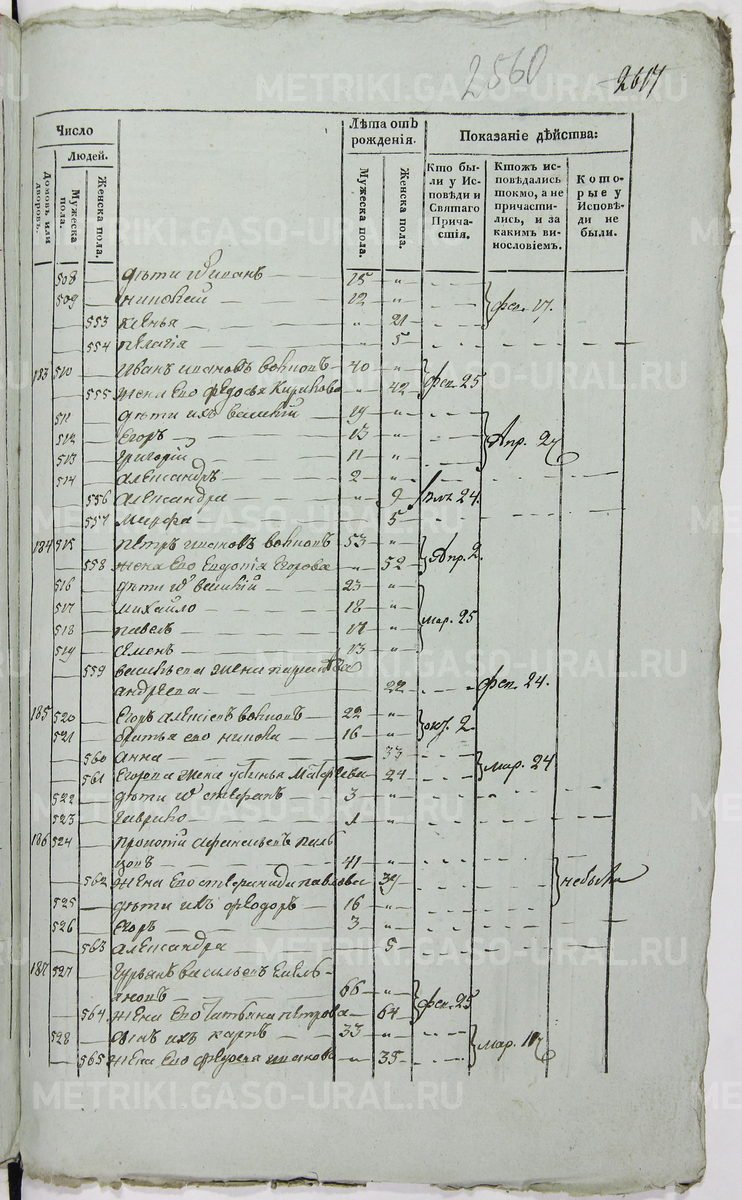 2560
2617
Число
Людей.
Домовъ или дворовъ.
Мужеска пола.
Женска пола.
Лѣта отъ рожденія.
Мужеска пола.
Женска пола.
Показаніе дѣйства:
Кто были у Исповѣди и Святаго Причастія.
Ктожъ исповѣдались токмо, а не причастились, и за какимъ винословіемъ.
Которые у Исповѣди не были.
508 дѣти Иванъ 15 „
509 12 „ фев. 17.
553 „ 21
554 пелагія „ 5
183 510 Иванъ ивановъ 40 „ фев. 25
555 жена Его федосья Кирикова „ 42
511 дѣти ихъ василій 19 „
512 Егоръ 13 „ Апр. 2
513 григорій 11 „
514 александръ 2 „
556 александра „ 9 24.
557 марфа 5
184 515 петръ ивановъ 53 „ Апр. 2.
558 жена Его Евдокія Егорова „ 52
516 дѣти василій 23 „
517 михайло 18 „ мар. 25
518 павелъ 17 „
519 семенъ 13 „
559 васильева жена
андреева 22 фев. 24.
185 520 Егоръ алексѣевъ 22 „ 2.
521 братья его никола 16 „
560 анна 33 мар. 24
561 Егорова жена устинья 24
522 дѣти стефанъ 3 „
523 гаврило 1 „
186 524 прокопій афанасьевъ
41 „ небыли
562 жена Его степанида павлова 39
525 дѣти ихъ федоръ 16 „
526 Егоръ 3 „
563 александра 5
187 527 гурьянъ васильевъ Емель-
яновъ 66 „ фев. 25
564 жена Его татьяна петрова 64
528 сынъ ихъ карпъ 33 „ мар.
565 жена Его федосья иванова „ 35
METRIKI.GASO-URAL.RU